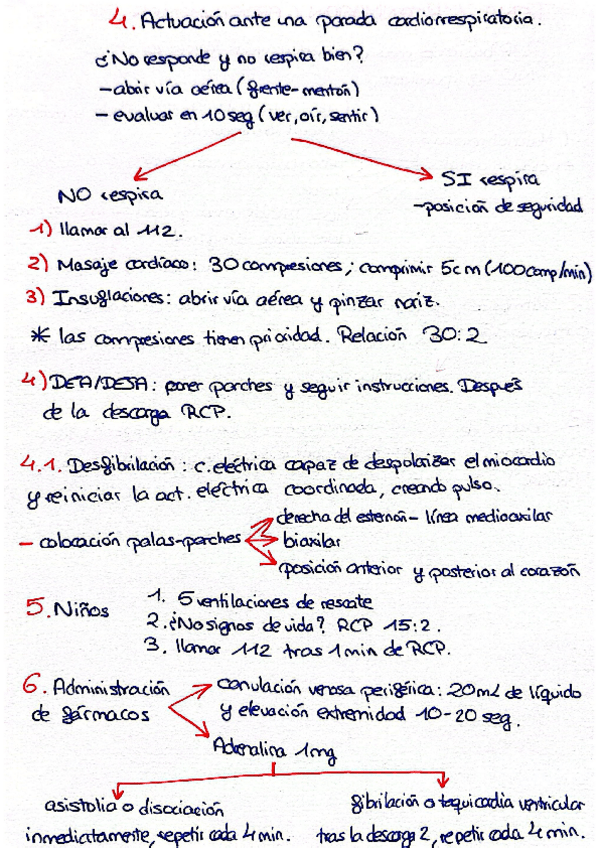 4. Actuación ante una parada cardiorrespiratoria.
¿No responde y no respira bien?
- abrir vía aérea (frente-mentón)
- evaluar en 10 seg (ver, oír, sentir)
NO respira
SI respira
- posición de seguridad
1) llamar al 112.
2) Masaje cardíaco: 30 compresiones; comprimir 5cm (100comp/min)
3) Insuflaciones: abrir vía aérea y pinzar nariz.
* las compresiones tienen prioridad. Relación 30:2
4) DEA/DESA: poner parches y seguir instrucciones. Después
de la descarga RCP.
4.1. Desfibrilación: c. eléctrica capaz de despolarizar el miocardio
y reiniciar la act. eléctrica coordinada, creando pulso.
- colocación palas-parches
derecha del esternón - línea medioaxilar
biaxilar
posición anterior y posterior al corazón
5. Niños
1. 5 ventilaciones de rescate
2. ¿No signos de vida? RCP 15:2.
3. llamar 112 tras 1 min de RCP.
6. Administración
de fármacos
canulación venosa periférica: 20mL de líquido
y elevación extremidad 10-20 seg.
Adrenalina 1mg
asistolia o disociación
inmediatamente, repetir cada 4 min.
fibrilación o taquicardia ventricular
tras la descarga 2, repetir cada 4 min.